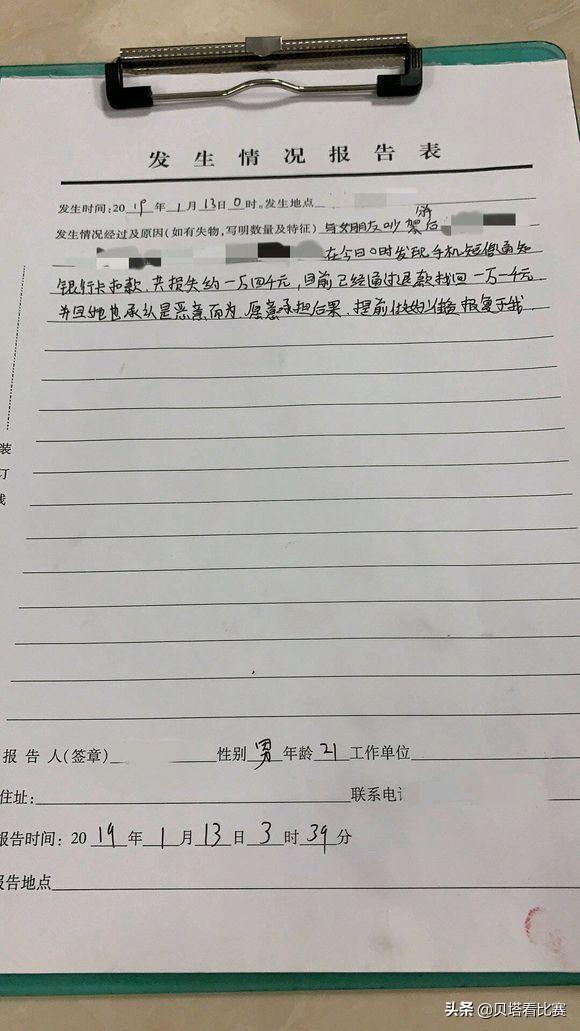 发生情况报告表
发生时间:2019年1月13日0时。发生地点
发生情况经过及原因(如有失物,写明数量及特征)与女朋友吵架后
在今日0时发现手机短信通知
银行卡扣款,共损失约一万四千元,目前已经通过退款找回一万一千元
并且她也承认是恶意而为,愿意承担后果,提前做好准备报复于我.
装
订
线
报告人(签章) 性别男年龄21工作单位
住址: 联系电话
报告时间:2019年1月13日3时39分
报告地点
头条 @贝塔看比赛